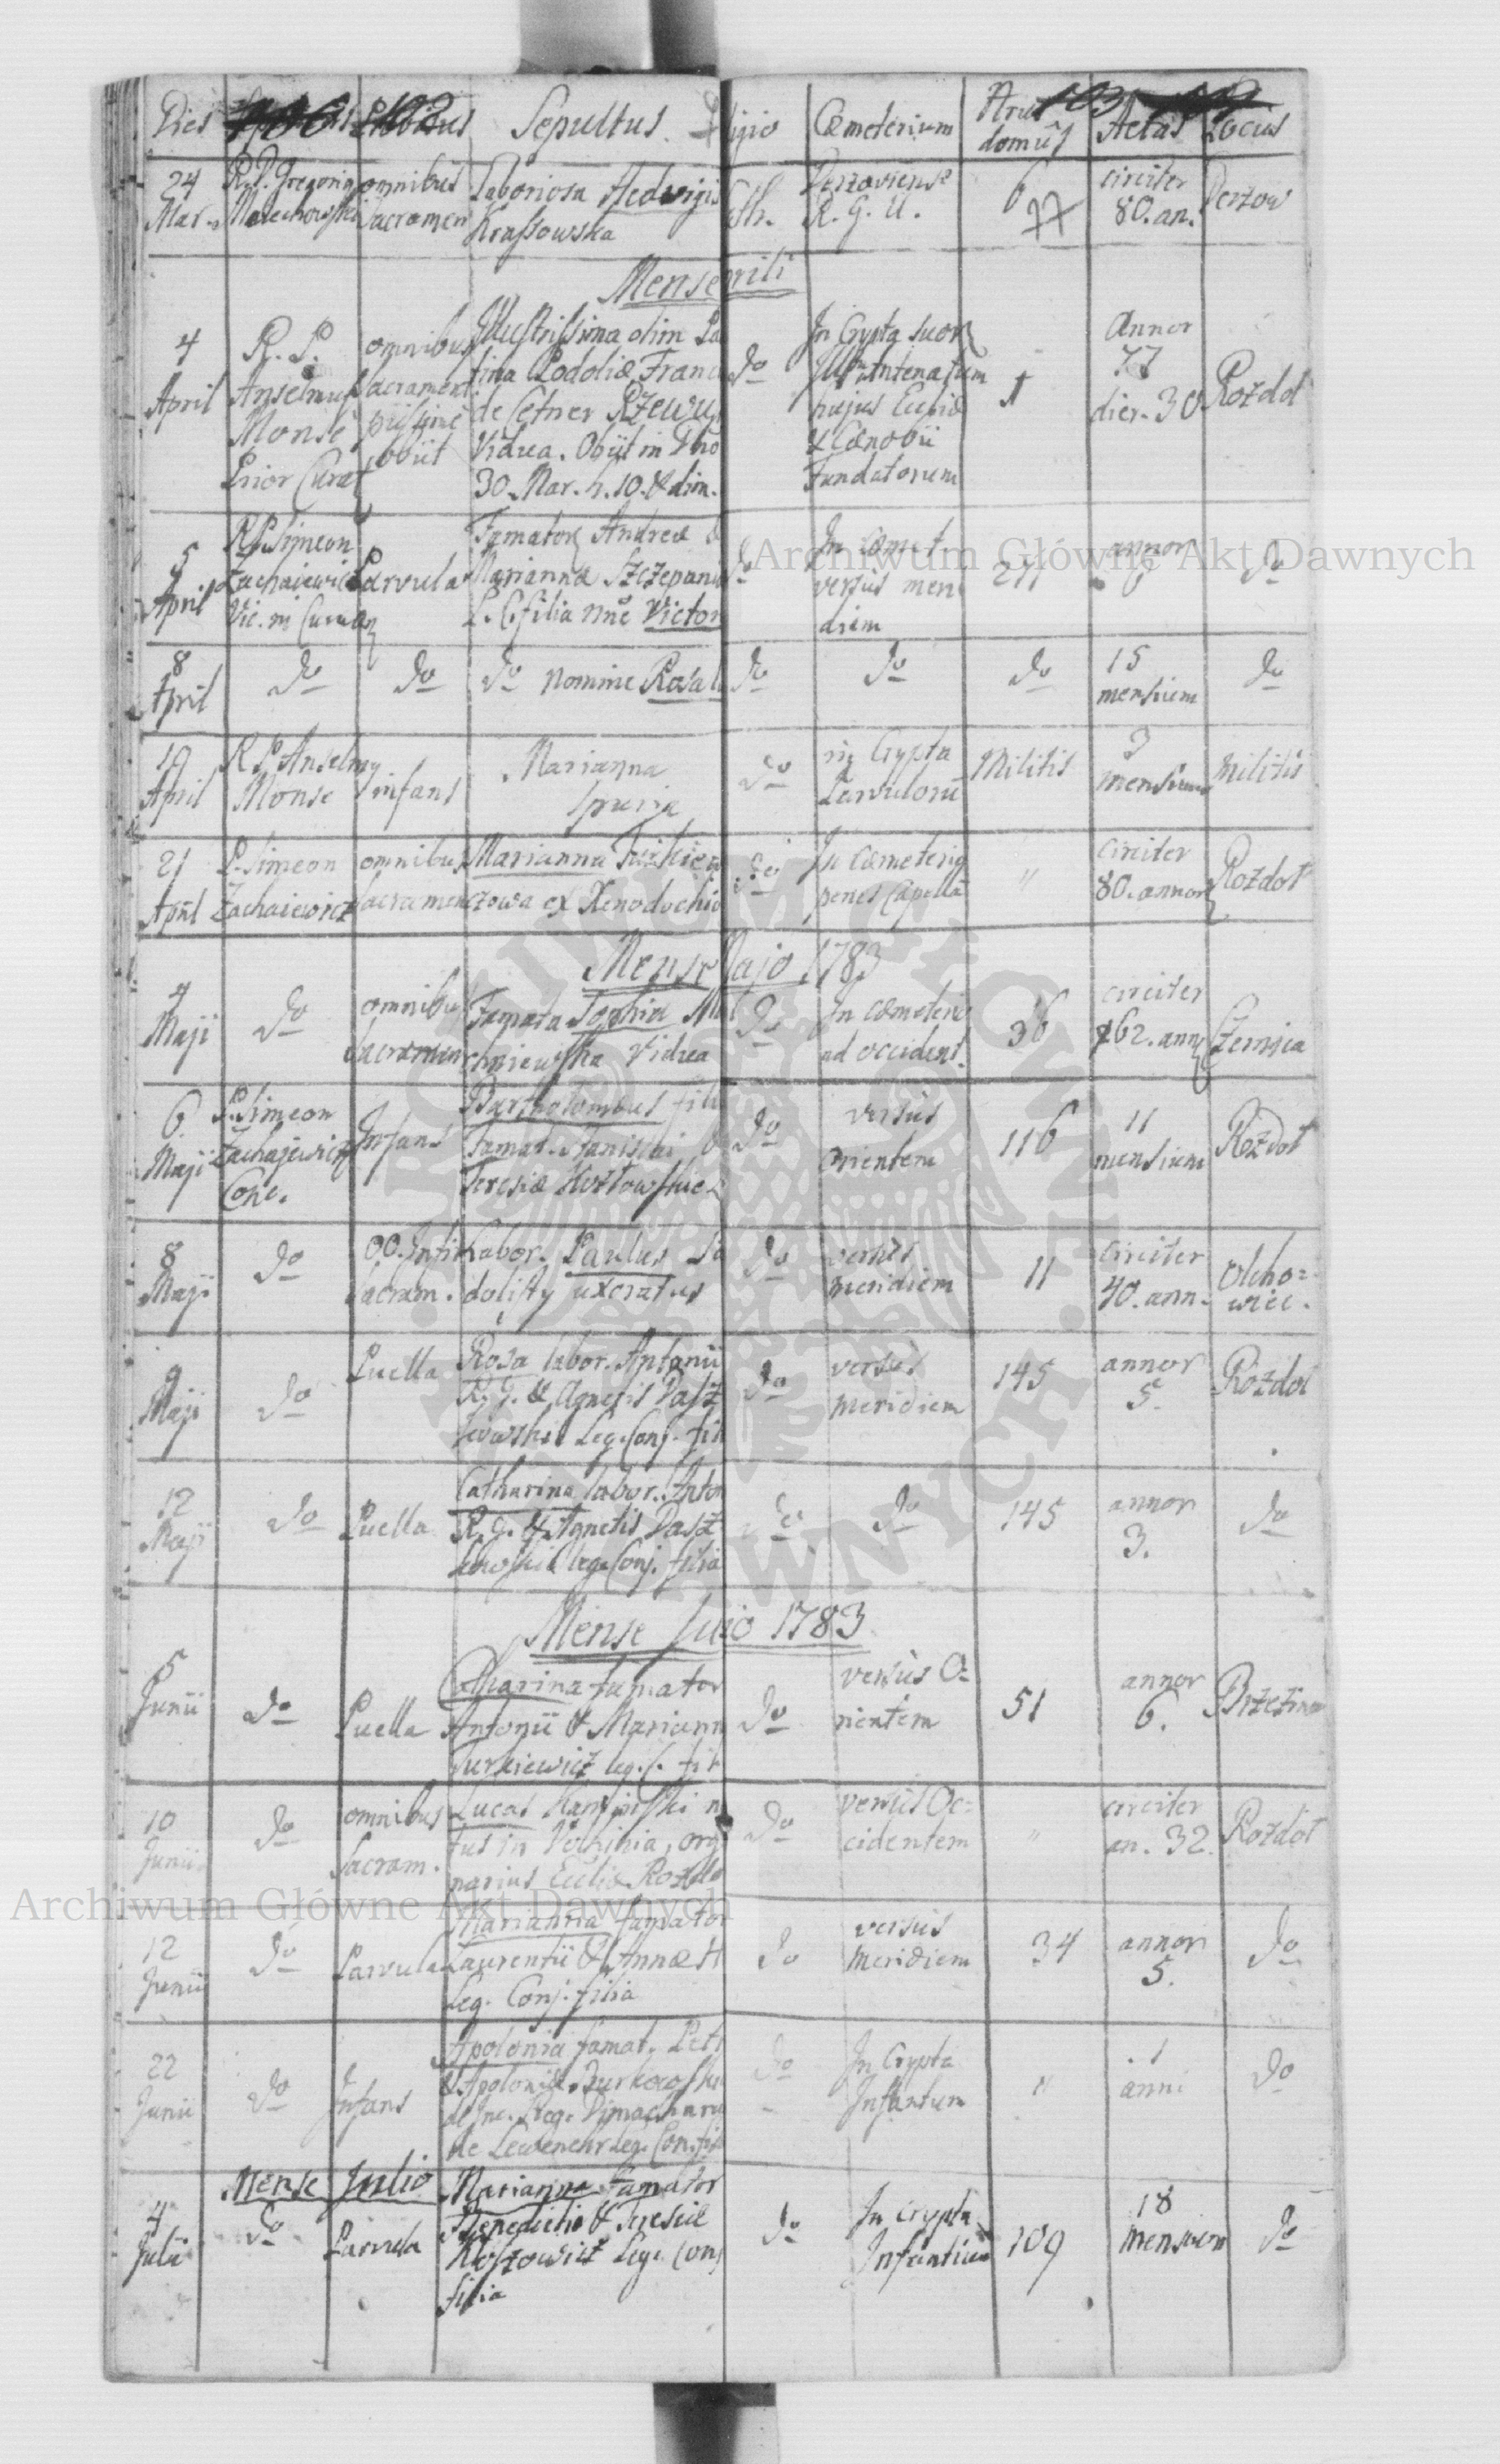 Dies Sepultus Religio Cœmeterium Nrus domûs Aetas Locus
24 Mar. R. P. Gregorius Malechowski omnibus Sacramen Laboriosa Hedwigis Krassowska Cth. Derzoviense R. G. U. 6 77 circiter 80. an. Derzow
Mense Aprili
4 April R. P. Anselmus Monse Prior Curat omnibus Sacrament piissime obiit
Illustrissima olim Pa
tina Podoliæ Franc
de Cetner Rzewu
Vidua. Obiit in Dno
30. Mar. h. 10. & dim.
do In Crypta suor
hujus Eccliæ
& Cænobii
Fundatorum
1 Annor 77 dier. 30 Rozdol
5 April R. P. Simeon Zachajewicz Vic. Parvula
Famator Andreæ &
Mariannæ Szczepani
L. C. filia nne Victor
do In cæmet.
versus meri
diem
annor 6 do
8 April do do do nomine Rosal do do do 15 mensium do
19 April R. P. Anselmy Monse infans Marianna spuria do in Crypta Parvulorũ Militis 3 mensium Militis
21 April P. Simeon Zachaiewicz omnibus sacramen Marianna
czowa ex Xenodochio do In Cœmeterio
penes Capellã " circiter 80. annor Rozdol
Mense Majo 1783
4 Maji do omnibus sacramen Famata Sophia
chniewska Vidua do In cæmeterio
ad occident. 36 circiter 62. ann Czernica
6 Maji P. Simeon Zachajewicz Conc. Infans Bartholomæus fili
Famat. Stanislai &
Teresiæ Kozłowskie do versus
orientem 116 11 mensium Rozdol
8 Maji do OO. Infir. Sacram. Labor. Paulus
uxoratus do versus
meridiem 11 circiter 40. ann. Olcho=
wiec.
9 Maji do Puella Rosa labor. Antonii
R. G. & Agnetis Dasz
kowskie Leg. Conj. fili do versus
meridiem 145 annor 5. Rozdol
12 Maji do Puella Catharina labor. Anton
R. G. & Agnetis Dasz
kowskie leg. Conj. filia do do 145 annor 3. do
Mense Junio 1783
5 Junii do Puella Catharina famator
Antonii & Mariann
Turkiewicz leg. C. fil do versus O=
rientem 51 annor 6. Brzezina
10 Junii do omnibus Sacram. Lucas n
tus in Volhinia, org
narius Eccliæ Rozdo do versus Oc=
cidentem " circiter an. 32. Rozdol
12 Junii do Parvula Marianna famator
Laurentii & Annæ
Leg. Conj. filia do versus
Meridiem 34 annor 5. do
22 Junii do Infans Apolonia famat. Petr
& Apoloniæ Burkowski
de Leg. Conj. fil do In Crypta
Infantum " 1 anni do
Mense Julio
4 Julii do Parvula Marianna Famator
Benedicti & Teresiæ
Leg. Conj
filia do In Crypta
Infantium 109 18 mensium do
Archiwum Główne Akt Dawnych
Archiwum Główne Akt Dawnych